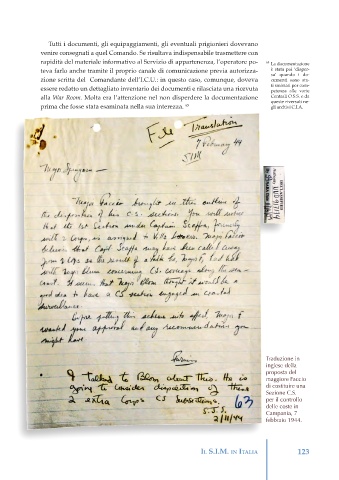 Tutti i documenti, gli equipaggiamenti, gli eventuali prigionieri dovevano
venire consegnati a quel Comando. Se risultava indispensabile trasmettere con
rapidità del materiale informativo al Servizio di appartenenza, l'operatore po-
teva farlo anche tramite il proprio canale di comunicazione previa autorizza-
zione scritta del Comandante dell'I.C.U.: in questo caso, comunque, doveva
essere redatto un dettagliato inventario dei documenti e rilasciata una ricevuta
alla War Room. Molta era l'attenzione nel non disperdere la documentazione
prima che fosse stata esaminata nella sua interezza.
La documentazione
è stata poi
sa" quando i do-
cumenti sono sta-
ti smistati per com-
petenza alle varie
e da
queste riversati ne-
gli archivi C.I.A.
File Translation
7 February 44
Major Spingarn —
Major Faccio brought in this outline of
the disposition of his C.S. sections. You will notice
that the 1st Section under Captain Scaffa, formerly
with 2 Corps, is assigned to
believes that Capt Scaffa may have been called away
from 2 Corps as the result of a talk he, Major F, had had
with Major Blom concerning C.S. coverage along the sea-
coast. It seems that Major Blom thought it would be a
good idea to have a CS section engaged in coastal
surveillance.
Before putting this scheme into effect, Major F
wanted your approval and any recommendations you
might have.
I talked to Blom about this. He is
going to consider disposition of these
2 extra Corps CS Subsections.
63
S.J.S.
2/11/44
Traduzione in
inglese della
proposta del
maggiore Faccio
di costituire una
Sezione C.S.
per il controllo
delle coste in
Campania, 7
febbraio 1944.
IL S.I.M. IN ITALIA 123